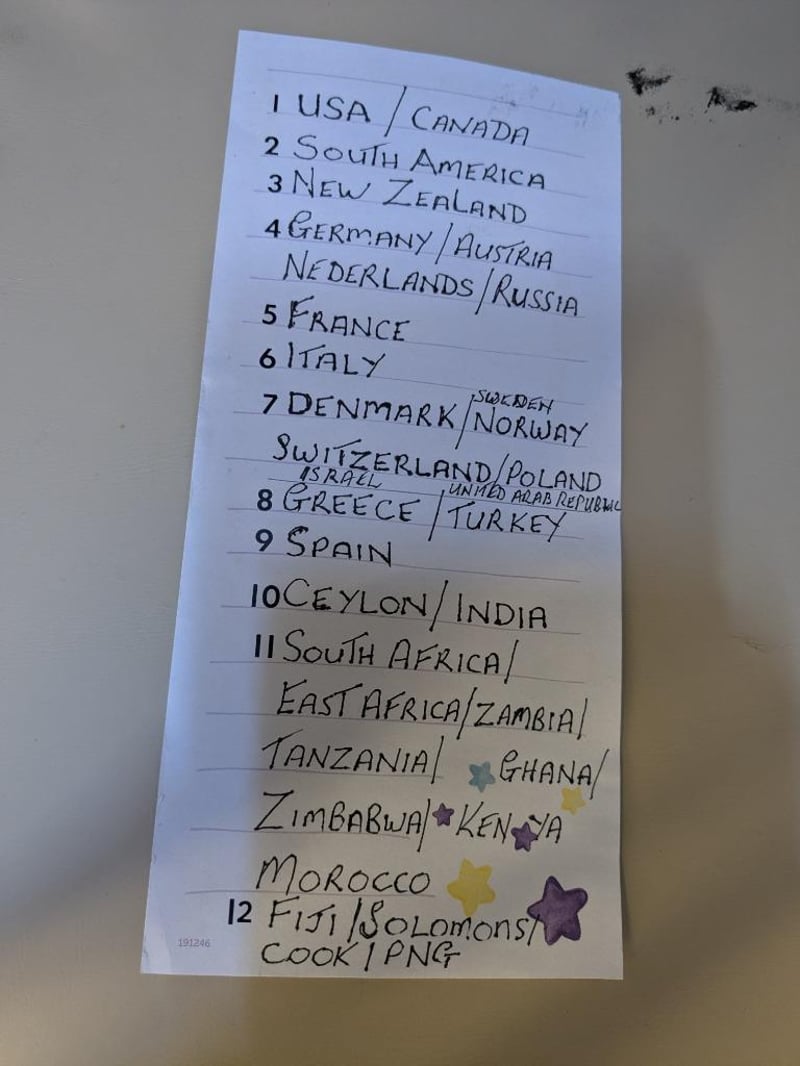 1 USA / CANADA
2 SOUTH AMERICA
3 NEW ZEALAND
4 GERMANY / AUSTRIA
NEDERLANDS / RUSSIA
5 FRANCE
6 ITALY
SWEDEN
7 DENMARK / NORWAY
SWITZERLAND / POLAND
ISRAEL UNITED ARAB REPUBLIC
8 GREECE / TURKEY
9 SPAIN
10 CEYLON / INDIA
11 SOUTH AFRICA /
EAST AFRICA / ZAMBIA /
TANZANIA / GHANA /
ZIMBABWA / KENYA
MOROCCO
12 FIJI / SOLOMONS /
COOK / PNG
191246